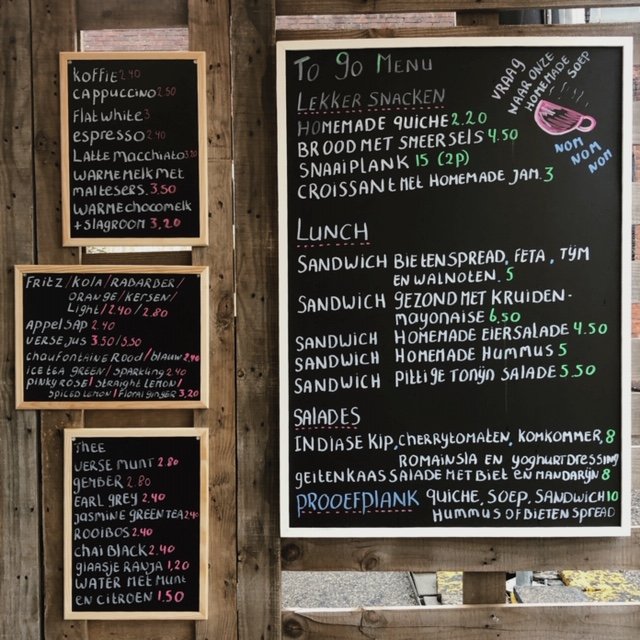 KOFFIE 2.40
CAPPUCCINO 2.50
FLAT WHITE 3
ESPRESSO 2.40
LATTE MACCHIATO
WARME MELK MET
MALTESERS. 3.50
WARME CHOCOMELK
+ SLAGROOM 3,20
FRITZ / KOLA / RABARDER /
ORANGE / KERSEN /
LIGHT / 2.40 / 2.80
APPELSAP 2.40
VERSE JUS 3.50/5.50
CHAUFONTAINE ROOD / BLAUW 2.40
ICE TEA GREEN / SPARKLING 2.40
PINKY ROSE / STRAIGHT LEMON /
SPICED LEMON / FLORAL GINGER 3,20
THEE
VERSE MUNT 2.80
GEMBER 2.80
EARL GREY 2.40
JASMINE GREEN TEA 2.40
ROOIBOS 2.40
CHAI BLACK 2.40
GLAASJE RANJA 1,20
WATER MET MUNT
EN CITROEN 1.50
TO GO MENU
VRAAG
NAAR ONZE
HOMEMADE
SOEP
NOM
NOM
NOM
LEKKER SNACKEN
HOMEMADE QUICHE 2.20
BROOD MET SMEERSELS 4.50
SNAAIPLANK 15 (2P)
CROISSANT MET HOMEMADE JAM. 3
LUNCH
SANDWICH BIETENSPREAD, FETA, TYM
EN WALNOTEN. 5
SANDWICH GEZOND MET KRUIDEN-
MAYONAISE 6,50
SANDWICH HOMEMADE EIERSALADE 4.50
SANDWICH HOMEMADE HUMMUS 5
SANDWICH PITTIGE TONIJN SALADE 5.50
SALADES
INDIASE KIP, CHERRYTOMATEN, KOMKOMMER, 8
ROMAINSLA EN YOGHURTDRESSING
GEITENKAAS SALADE MET BIET EN MANDARIJN 8
PROOEFPLANK QUICHE, SOEP, SANDWICH 10
HUMMUS OF BIETEN SPREAD